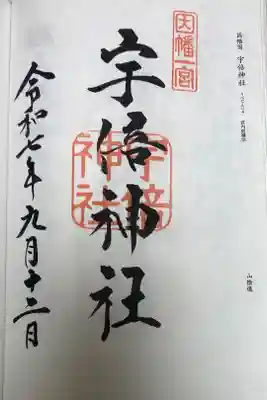 因幡一宮
因幡国 宇倍神社
宇倍神社
宇倍
神社
令和七年九月十二日
山陰道